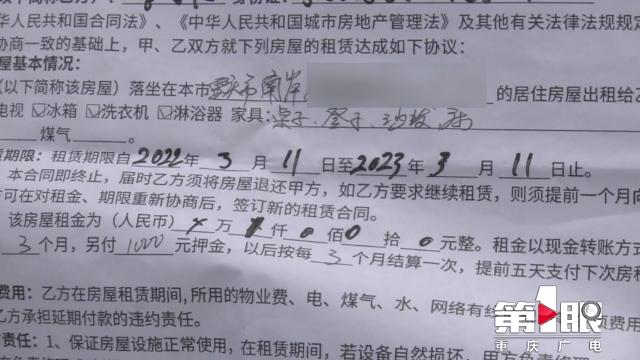 以下简称乙方）：
民共和国合同法》、《中华人民共和国城市房地产管理法》及其他有关法律法规规定
协商一致的基础上，甲、乙双方就下列房屋的租赁达成如下协议：
屋基本情况：
（以下简称该房屋）落坐在本市重庆市南岸 的居住房屋出租给乙
电视 ☑冰箱 ☑洗衣机 ☑淋浴器 家具：桌子、凳子、沙发
煤气 。
赁期限：租赁期限自2022年3月11日至2023年3月11日止。
本合同即终止，届时乙方须将房屋退还甲方，如乙方要求继续租赁，则须提前一个月向
方可在对租金、期限重新协商后，签订新的租赁合同。
该房屋租金为（人民币） 万 仟0佰0拾0元整。租金以现金转账方式
3个月，另付1000元押金，以后按每3个月结算一次，提前五天支付下次房租
费用：乙方在房屋租赁期间，所用的物业费、电、煤气、水、网络有线
乙方承担延期付款的违约责任。
责任：1、保证房屋设施正常使用，在租赁期间，若设备自然损坏，甲方负
第1眼
重庆广电